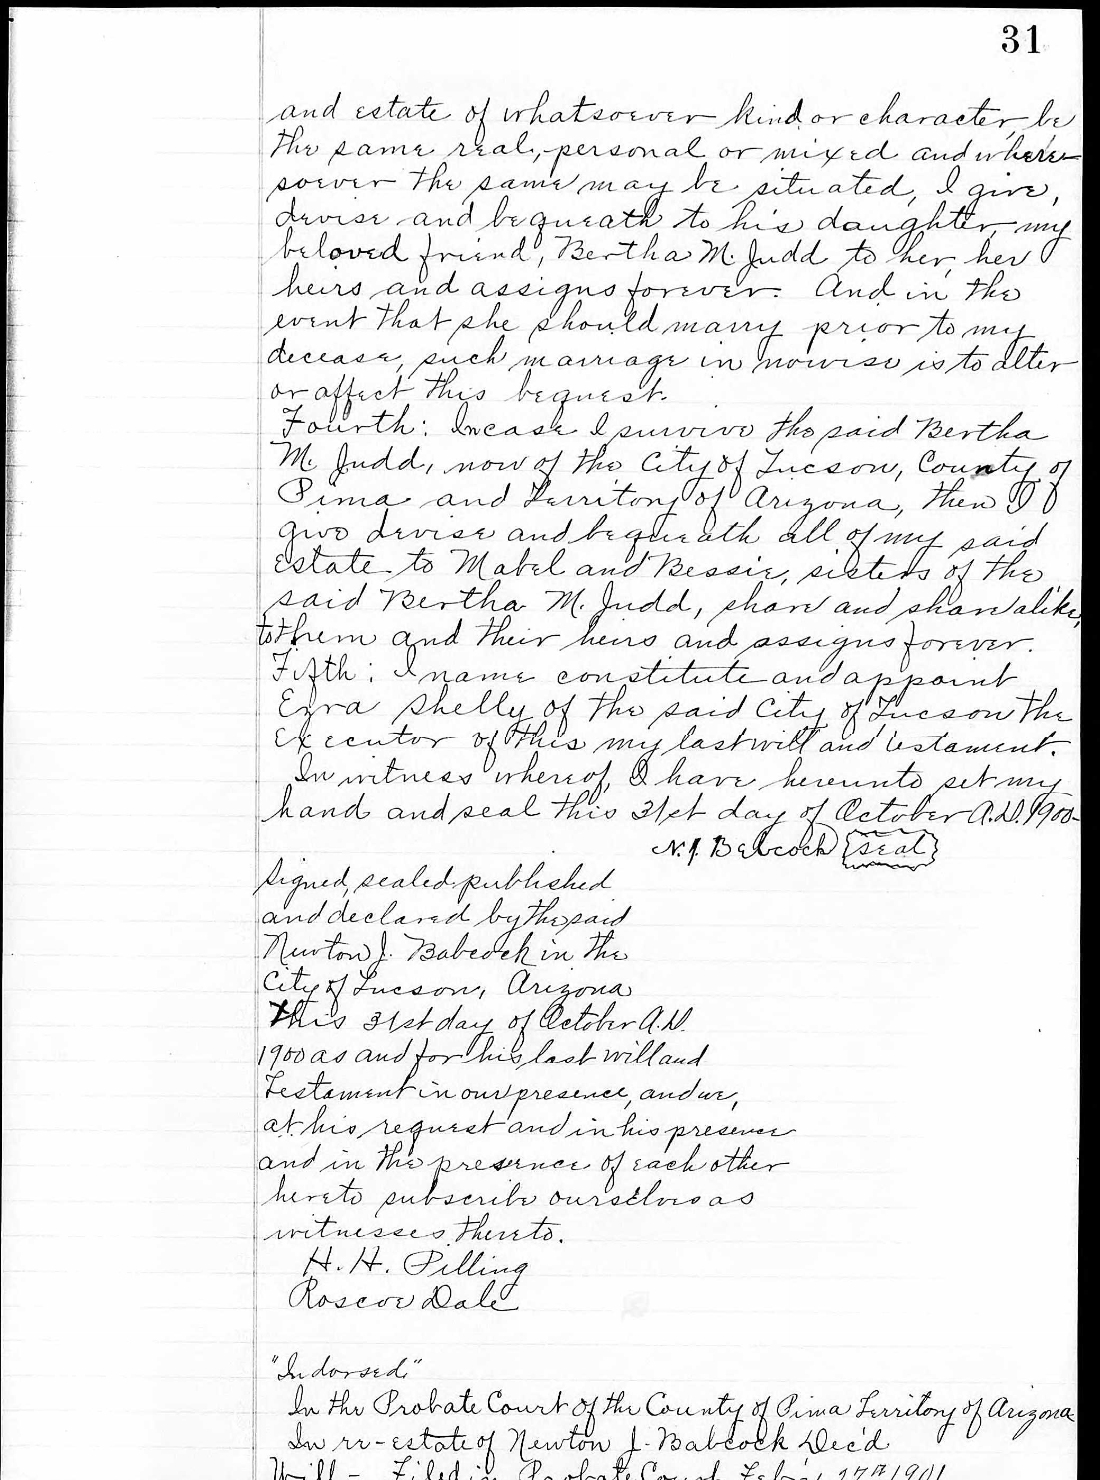 31
and estate of whatsoever kind or character, be
the same real, personal or mixed and where-
soever the same may be situated, I give,
devise and bequeath to his daughter, my
beloved friend, Bertha M. Judd to her, her
heirs and assigns forever. And in the
event that she should marry prior to my
decease, such marriage in nowise is to alter
or affect this bequest.
Fourth: In case I survive the said Bertha
M. Judd, now of the City of Tucson, County of
Pima and Territory of Arizona, then I
give devise and bequeath all of my said
estate to Mabel and Bessie, sisters of the
said Bertha M. Judd, share and share alike,
to them and their heirs and assigns forever.
Fifth: I name constitute and appoint
Ezra Shelly of the said City of Tucson the
Executor of this my last will and testament.
In witness whereof, I have hereunto set my
hand and seal this 31st day of October A.D. 1900-
N. J. Babcock seal
Signed, sealed published
and declared by the said
Newton J. Babcock in the
City of Tucson, Arizona
This 31st day of October A.D.
1900 as and for his last will and
Testament in our presence, and we,
at his request and in his presence
and in the presence of each other
hereto subscribe ourselves as
witnesses thereto.
H. H. Pilling
Roscoe Dale
"Indorsed"
In the Probate Court of the County of Pima Territory of Arizona
In re-estate of Newton J. Babcock Dec'd
Will - Filed in Probate Court Feby 27th 1901